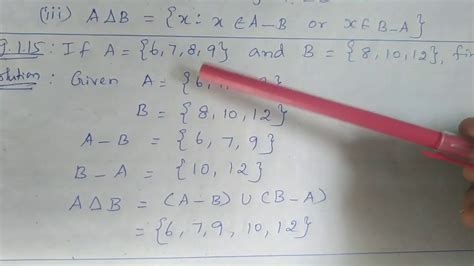 (iii) A Δ B = {x : x ∈ A-B or x ∈ B-A}
g.1.15 : If A = {6,7,8,9} and B = {8,10,12},
lution : Given A = {6,
B = {8,10,12}
A-B = {6,7,9}
B-A = {10,12}
A Δ B = (A-B) ∪ (B-A)
= {6,7,9,10,12}